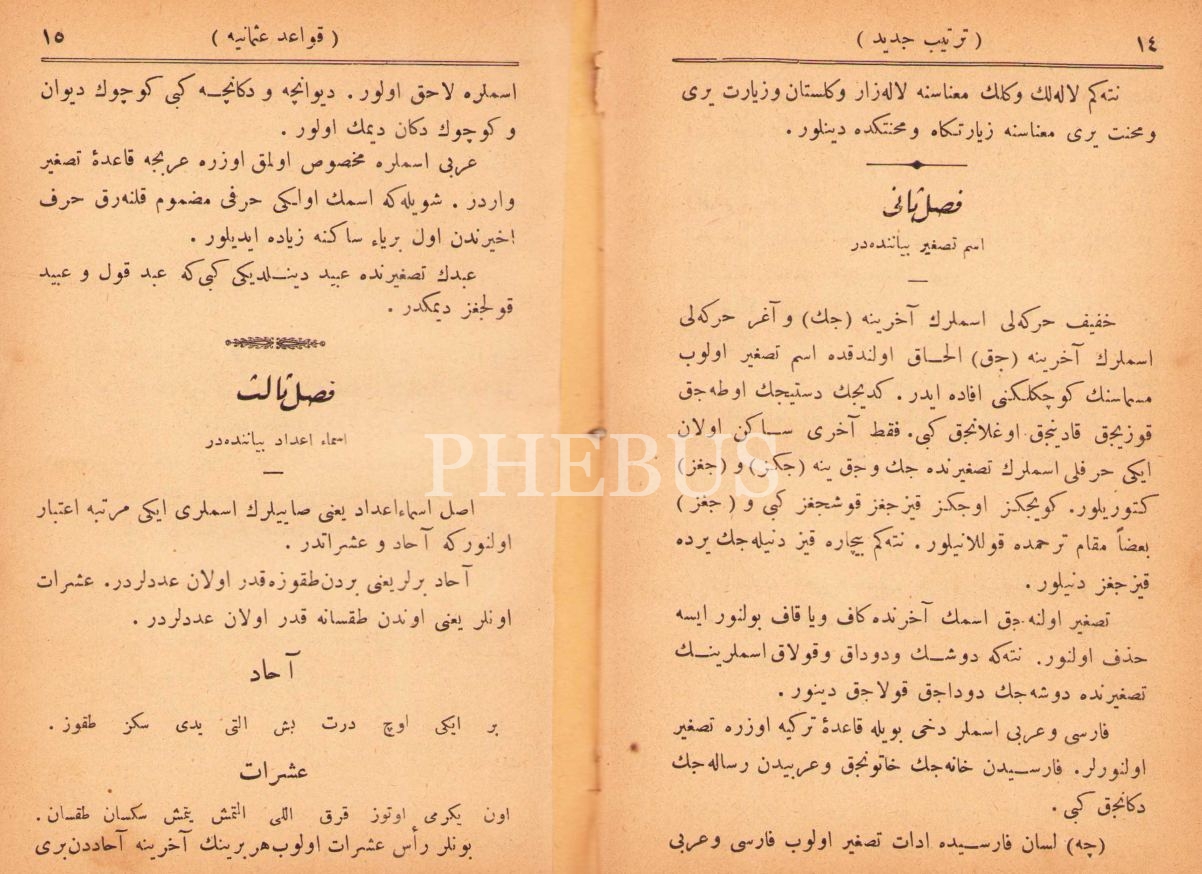 ١٤ ( ترتيب جديد )
نته‌كم لاله‌لك وكلك معناسنه لاله‌زار وكلستان وزيارت يرى
ومحنت يرى معناسنه زيارتكاه ومحنتكده دينلور.
فصل ثانى
اسم تصغير بياننده‌در
خفيف حركه‌لى اسملرك آخرينه (جك) و آغر حركه‌لى
اسملرك آخرينه (جق) الحاق اولندقده اسم تصغير اولوب
مسماسنك كوچكلكنى افاده ايدر. كديجك دستيجك اوطه‌جق
قوزيجق قادينجق اوغلانجق كبى. فقط آخرى ساكن اولان
ايكى حرفلى اسملرك تصغيرنده جك وجق ينه (جكز) و (جغز)
كتوريلور. كويجكز اوجكز قيزجغز قوشجغز كبى و (جغز)
بعضاً مقام ترحمده قوللانيلور. نته‌كم بيچاره قيز دنيله‌جك يرده
قيزجغز دنيلور.
تصغير اولنه‌جق اسمك آخرنده كاف ويا قاف بولنور ايسه
حذف اولنور. نته‌كه دوشك ودوداق وقولاق اسملرينك
تصغيرنده دوشه‌جك دوداجق قولاجق دينور.
فارسى وعربى اسملر دخى بويله قاعدۀ تركيه اوزره تصغير
اولنورلر. فارسيدن خانه‌جك خاتونجق وعربيدن رساله‌جك
دكانجق كبى.
(چه) لسان فارسيده ادات تصغير اولوب فارسى وعربى
( قواعد عثمانيه ) ١٥
اسملره لاحق اولور. ديوانچه و دكانچه كبى كوچوك ديوان
و كوچوك دكان ديمك اولور.
عربى اسملره مخصوص اولمق اوزره عربجه قاعدۀ تصغير
واردر. شويله‌كه اسمك اولكى حرفى مضموم قلنه‌رق حرف
اخيرندن اول برياء ساكنه زياده ايديلور.
عبدك تصغيرنده عبيد دينلديكى كبى‌كه عبد قول و عبيد
قولجغز ديمكدر.
فصل ثالث
اسماء اعداد بياننده‌در
اصل اسماءاعداد يعنى صاييلرك اسملرى ايكى مرتبه اعتبار
اولنوركه آحاد و عشراتدر.
آحاد برلر يعنى بردن طقوزه‌قدر اولان عددلردر. عشرات
اونلر يعنى اوندن طقسانه قدر اولان عددلردر.
آحاد
بر ايكى اوچ درت بش التى يدى سكز طقوز.
عشرات
اون يكرمى اوتوز قرق اللى التمش يتمش سكسان طقسان.
بونلر رأس عشرات اولوب هربرينك آخرينه آحاددن برى
PHEBUS